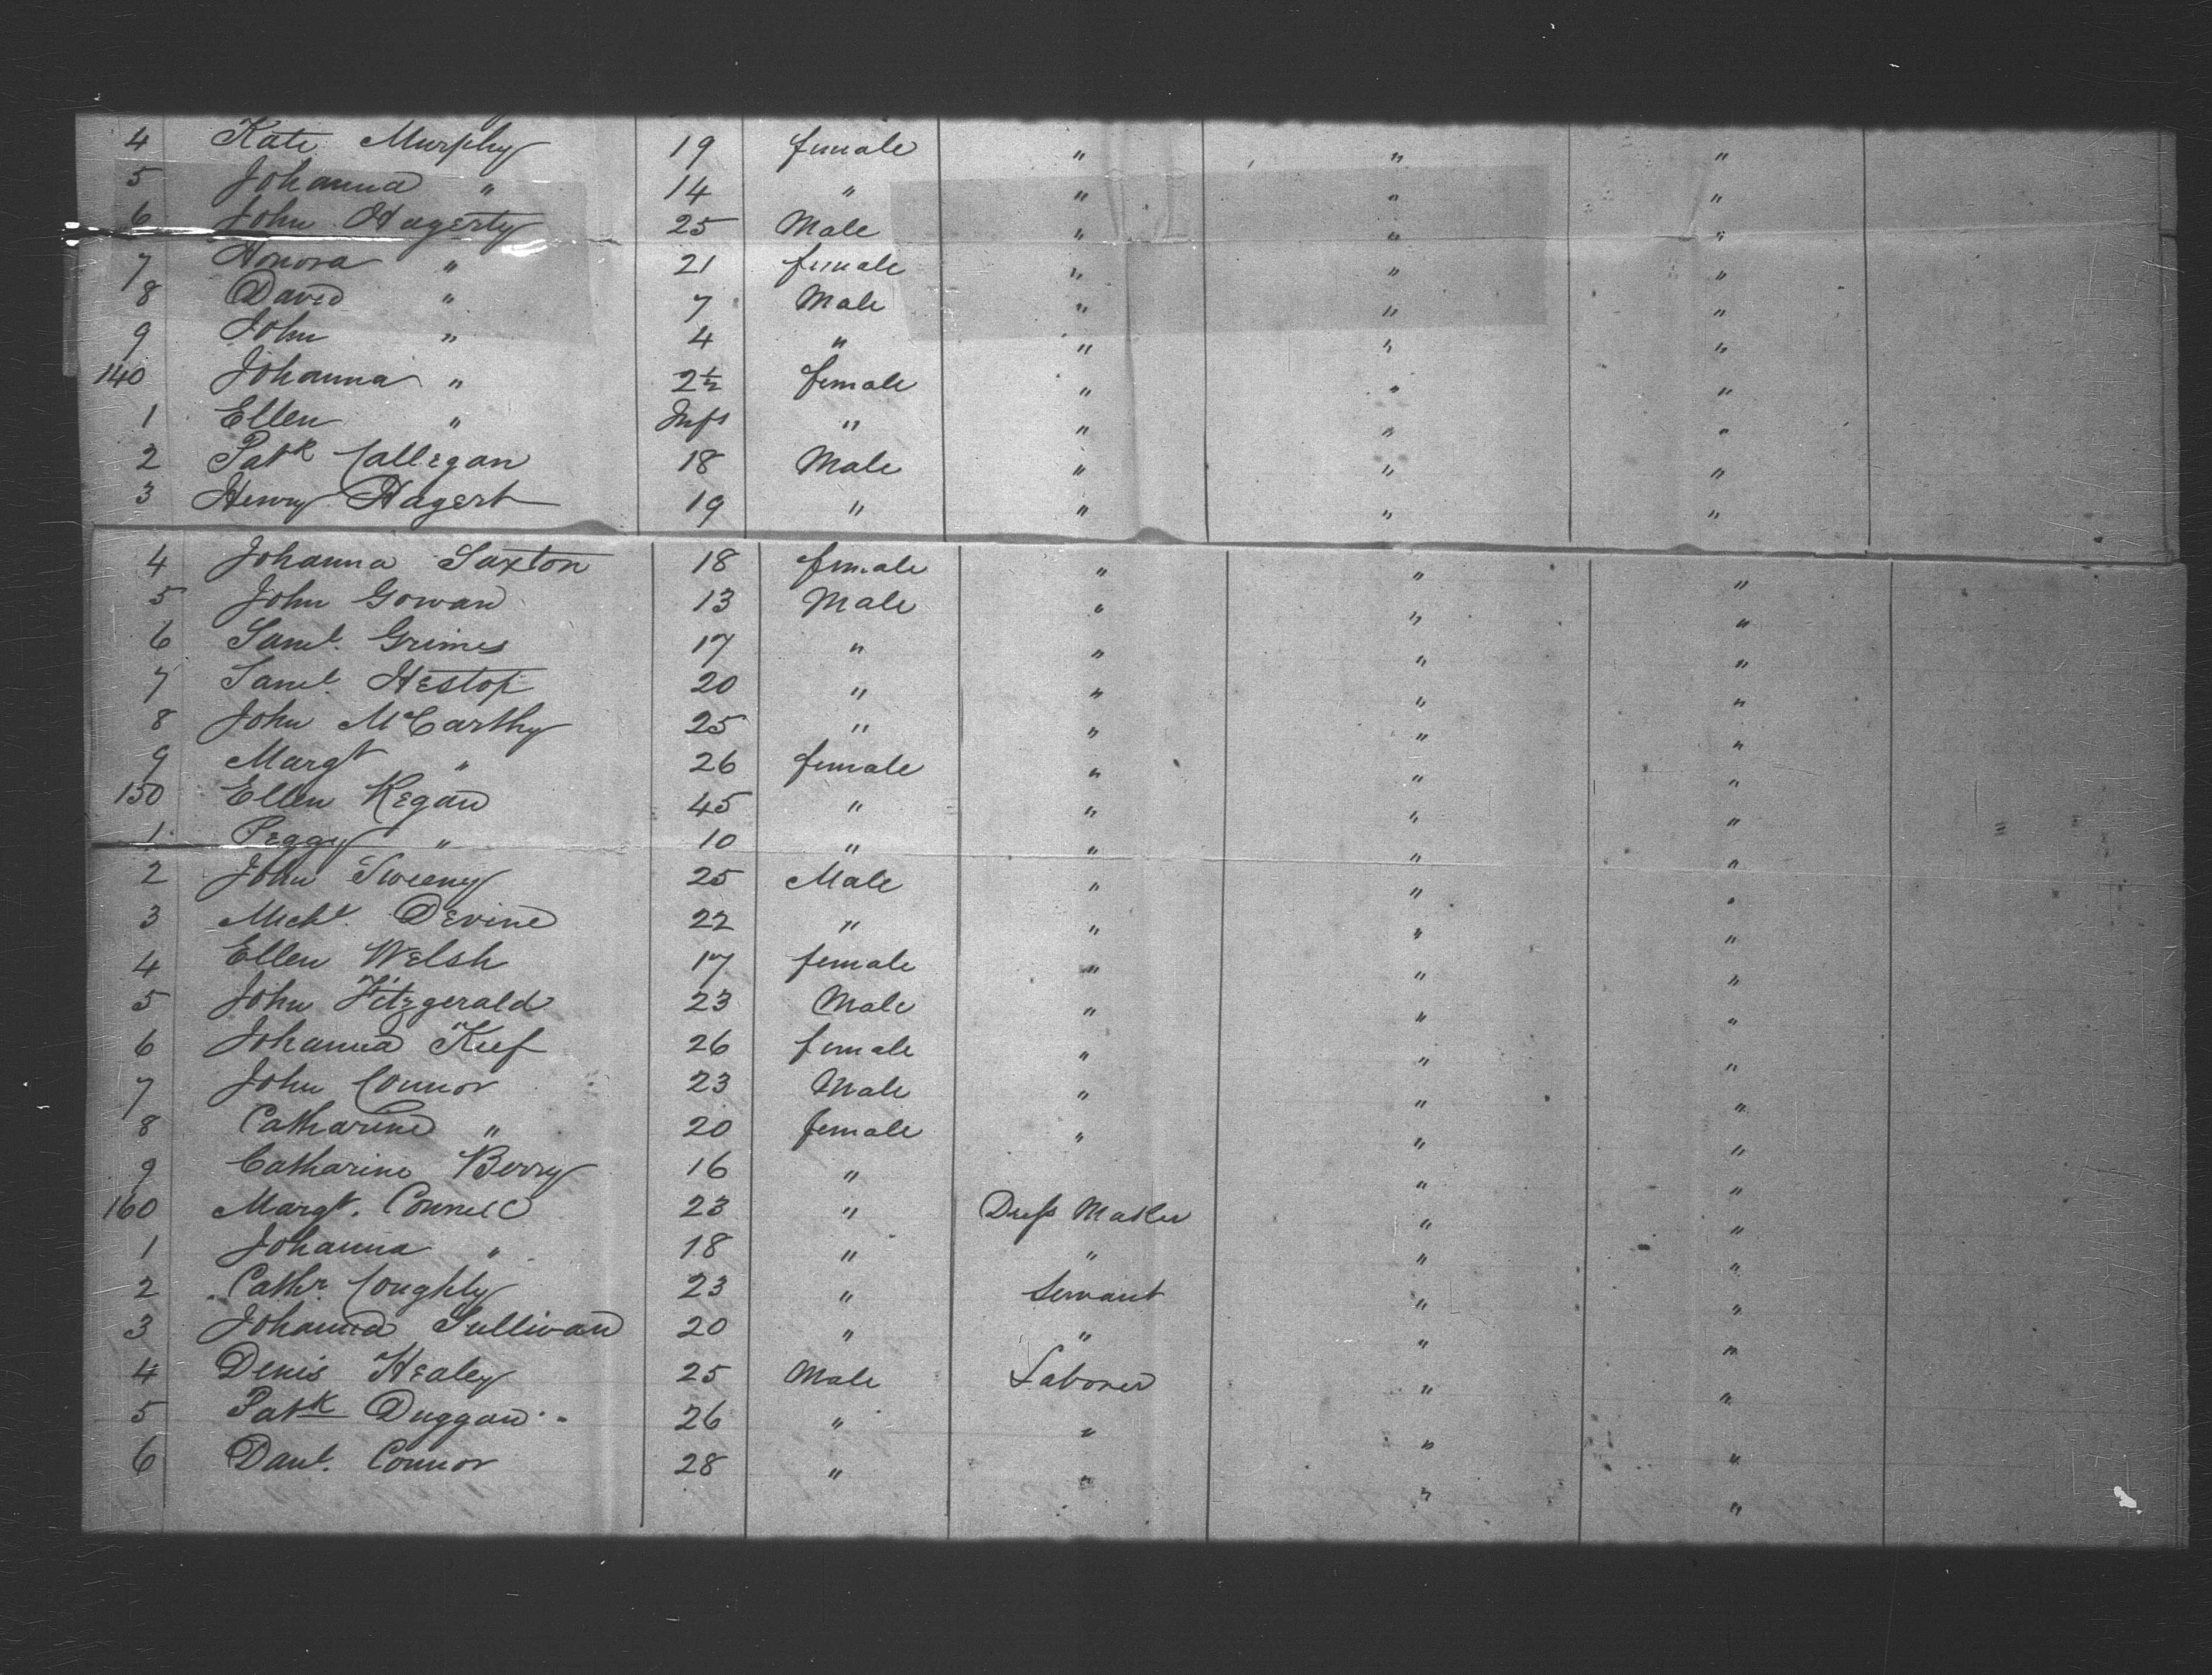 4 Kate Murphy 19 female " " "
5 Johanna " 14 " " " "
6 John Hagerty 25 Male " " "
7 Honora " 21 female " " "
8 David " 7 Male " " "
9 John " 4 " " " "
140 Johanna " 2½ female " " "
1 Ellen " Inft " " " "
2 Patk Callegan 18 Male " " "
3 Henry Hagert 19 " " " "
4 Johanna Saxton 18 female " " "
5 John Gowan 13 Male " " "
6 Saml. Grimes 17 " " " "
7 Saml. Hestop 20 " " " "
8 John McCarthy 25 " " " "
9 Margt " 26 female " " "
150 Ellen Regan 45 " " " "
1 Peggy " 10 " " " "
2 John Sweeny 25 Male " " "
3 Michl. Devine 22 " " " "
4 Ellen Welsh 17 female " " "
5 John Fitzgerald 23 Male " " "
6 Johanna Keef 26 female " " "
7 John Connor 23 Male " " "
8 Catharine " 20 female " " "
9 Catharine Berry 16 " " "
160 Margt. Connell 23 " Dress Maker " "
1 Johanna " 18 " " " "
2 Cathr. Coughly 23 " Servant " "
3 Johanna Sullivan 20 " " " "
4 Denis Healey 25 Male Laborer " "
5 Patk Duggan 26 " " " "
6 Danl. Connor 28 " " " "